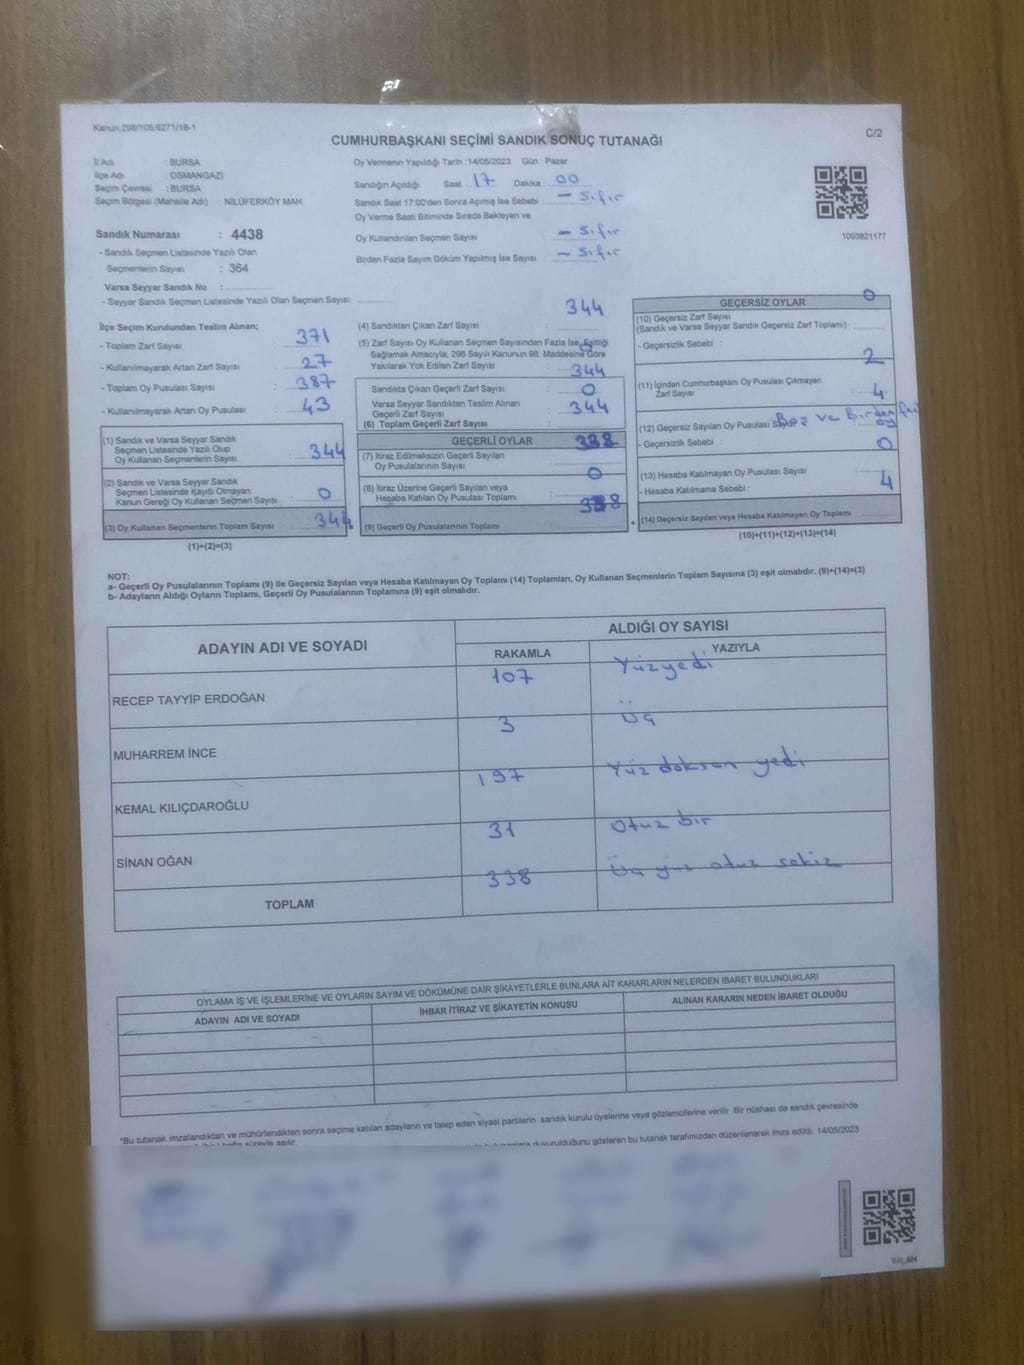 Kanun:298/105;6271/18-1
C/2
CUMHURBAŞKANI SEÇİMİ SANDIK SONUÇ TUTANAĞI
İl Adı : BURSA
İlçe Adı : OSMANGAZİ
Seçim Çevresi : BURSA
Seçim Bölgesi (Mahalle Adı) : NİLÜFERKÖY MAH.
Sandık Numarası : 4438
- Sandık Seçmen Listesinde Yazılı Olan
Seçmenlerin Sayısı : 364
Varsa Seyyar Sandık No :
- Seyyar Sandık Seçmen Listesinde Yazılı Olan Seçmen Sayısı:
Oy Vermenin Yapıldığı Tarih :14/05/2023 Gün : Pazar
Sandığın Açıldığı Saat : 17 Dakika : 00
Sandık Saat 17:00'den Sonra Açılmış İse Sebebi : - Sıfır
Oy Verme Saati Bitiminde Sırada Bekleyen ve
Oy Kullandırılan Seçmen Sayısı : - Sıfır
Birden Fazla Sayım Döküm Yapılmış İse Sayısı : - Sıfır
1093821177
İlçe Seçim Kurulundan Teslim Alınan;
- Toplam Zarf Sayısı : 371
- Kullanılmayarak Artan Zarf Sayısı : 27
- Toplam Oy Pusulası Sayısı : 387
- Kullanılmayarak Artan Oy Pusulası : 43
(1) Sandık ve Varsa Seyyar Sandık
Seçmen Listesinde Yazılı Olup
Oy Kullanan Seçmenlerin Sayısı : 344
(2) Sandık ve Varsa Seyyar Sandık
Seçmen Listesinde Kayıtlı Olmayan
Kanun Gereği Oy Kullanan Seçmen Sayısı : 0
(3) Oy Kullanan Seçmenlerin Toplam Sayısı : 344
(1)+(2)=(3)
(4) Sandıktan Çıkan Zarf Sayısı : 344
(5) Zarf Sayısı Oy Kullanan Seçmen Sayısından Fazla İse, Eşitliği
Sağlamak Amacıyla; 298 Sayılı Kanunun 98. Maddesine Göre
Yakılarak Yok Edilen Zarf Sayısı : 0
Sandıkta Çıkan Geçerli Zarf Sayısı : 344
Varsa Seyyar Sandıktan Teslim Alınan
Geçerli Zarf Sayısı : 0
(6) Toplam Geçerli Zarf Sayısı : 344
GEÇERLİ OYLAR
(7) İtiraz Edilmeksizin Geçerli Sayılan
Oy Pusulalarının Sayısı : 338
(8) İtiraz Üzerine Geçerli Sayılan veya
Hesaba Katılan Oy Pusulası Toplamı : 0
(9) Geçerli Oy Pusulalarının Toplamı : 338
GEÇERSİZ OYLAR
(10) Geçersiz Zarf Sayısı
(Sandık ve Varsa Seyyar Sandık Geçersiz Zarf Toplamı) : 0
- Geçersizlik Sebebi :
(11) İçinden Cumhurbaşkanı Oy Pusulası Çıkmayan
Zarf Sayısı : 2
(12) Geçersiz Sayılan Oy Pusulası Sayısı : 4
- Geçersizlik Sebebi : Boş ve Birden
oy
(13) Hesaba Katılmayan Oy Pusulası Sayısı : 0
- Hesaba Katılmama Sebebi :
+ (14) Geçersiz Sayılan veya Hesaba Katılmayan Oy Toplamı : 4
(10)+(11)+(12)+(13)=(14)
NOT:
a- Geçerli Oy Pusulalarının Toplamı (9) ile Geçersiz Sayılan veya Hesaba Katılmayan Oy Toplamı (14) Toplamları, Oy Kullanan Seçmenlerin Toplam Sayısına (3) eşit olmalıdır. (9)+(14)=(3)
b- Adayların Aldığı Oyların Toplamı, Geçerli Oy Pusulalarının Toplamına (9) eşit olmalıdır.
ADAYIN ADI VE SOYADI ALDIĞI OY SAYISI
RAKAMLA YAZIYLA
RECEP TAYYİP ERDOĞAN 107 Yüzyedi
MUHARREM İNCE 3 Üç
KEMAL KILIÇDAROĞLU 197 Yüz doksan yedi
SİNAN OĞAN 31 Otuz bir
TOPLAM 338 Üç yüz otuz sekiz
OYLAMA İŞ VE İŞLEMLERİNE VE OYLARIN SAYIM VE DÖKÜMÜNE DAİR ŞİKAYETLERLE BUNLARA AİT KARARLARIN NELERDEN İBARET BULUNDUKLARI
ADAYIN ADI VE SOYADI İHBAR İTİRAZ VE ŞİKAYETİN KONUSU ALINAN KARARIN NEDEN İBARET OLDUĞU
*Bu tutanak imzalandıktan ve mühürlendikten sonra seçime katılan adayların ve talep eden siyasi partilerin sandık kurulu üyelerine veya gözlemcilerine verilir. Bir nüshası da sandık çevresinde
hafta süreyle asılır.
duyurulduğunu gösteren bu tutanak tarafımızdan düzenlenerek imza edildi. 14/05/2023